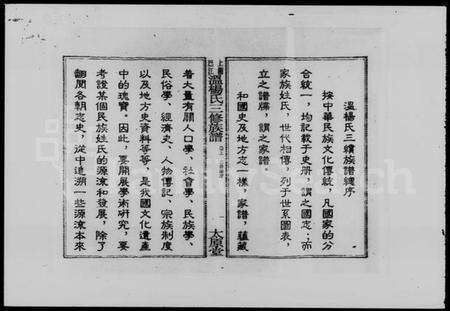 溫楊氏三續族譜總序
按中華民族文化傳統，凡國家的分
合統一，均記載于史冊，謂之國志；而
家族姓氏，世代相傳，列于世系圖表，
立之譜牒，謂之家譜
和國史及地方志一樣，家譜，蘊藏
溫楊氏三修族譜
一
太原堂
着大量有關人口學、社會學、民族學、
民俗學、經濟史、人物傳記、宗族制度
以及地方史資料等等，是我國文化遺產
中的瑰寶。因此，要開展學術研究，要
考證某個民族姓氏的源流和發展，除了
翻閱各朝志史，從中追溯一些源流本來